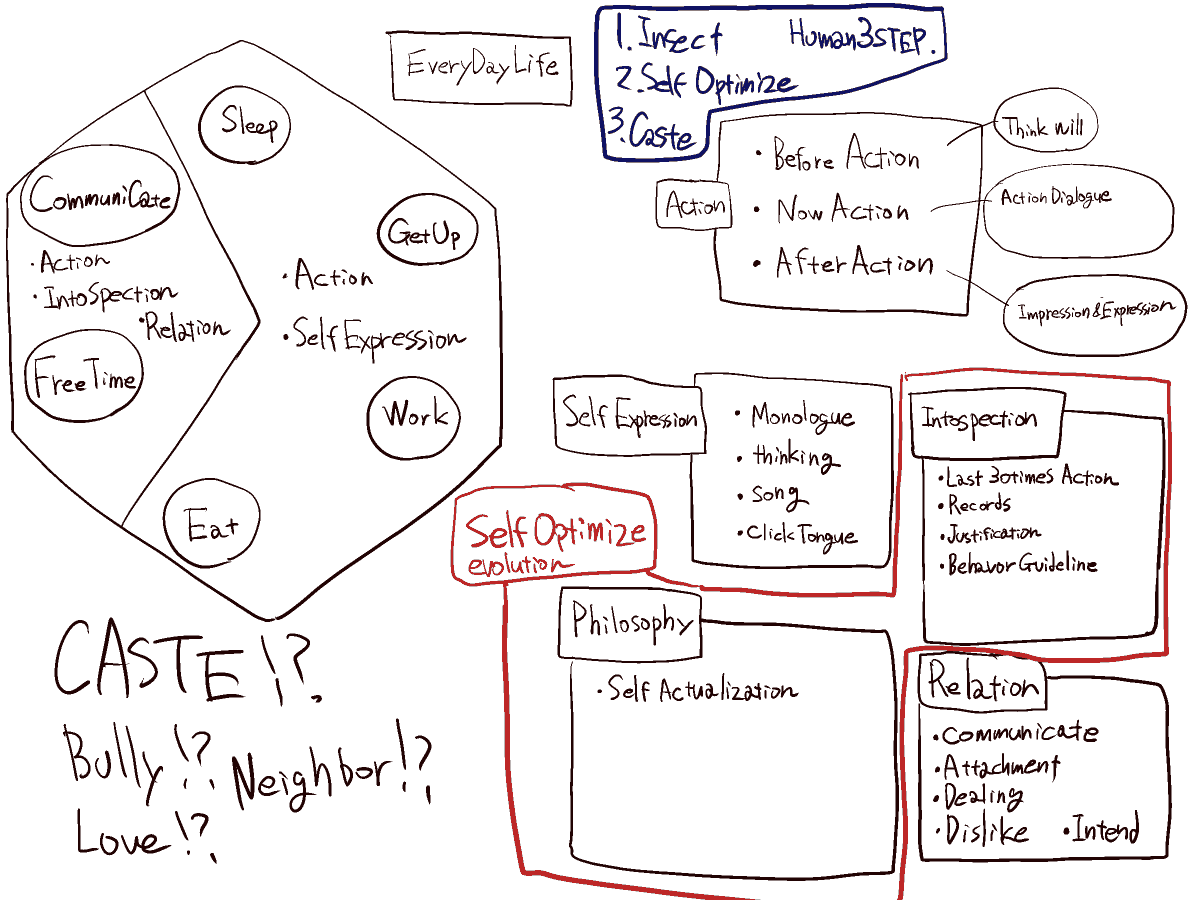 EveryDayLife
1. Insect Human3STEP.
2. Self Optimize
3. Caste
Sleep
CommuniCate
GetUp
・Action
・IntoSpection
・Relation
FreeTime
・Action
・Self Expression
Work
Eat
Action
・Before Action
・Now Action
・After Action
Think Will
Action Dialogue
Impression&Expression
Self Expression
・Monologue
・thinking
・song
・Click Tongue
Intospection
・Last 30times Action
・Records
・Justification
・Behavor Guideline
Self Optimize
evolution
Philosophy
・Self Actualization
Relation
・Communicate
・Attachment
・Dealing
・Dislike ・Intend
CASTE!?
Bully!?
Neighbor!?
Love!?